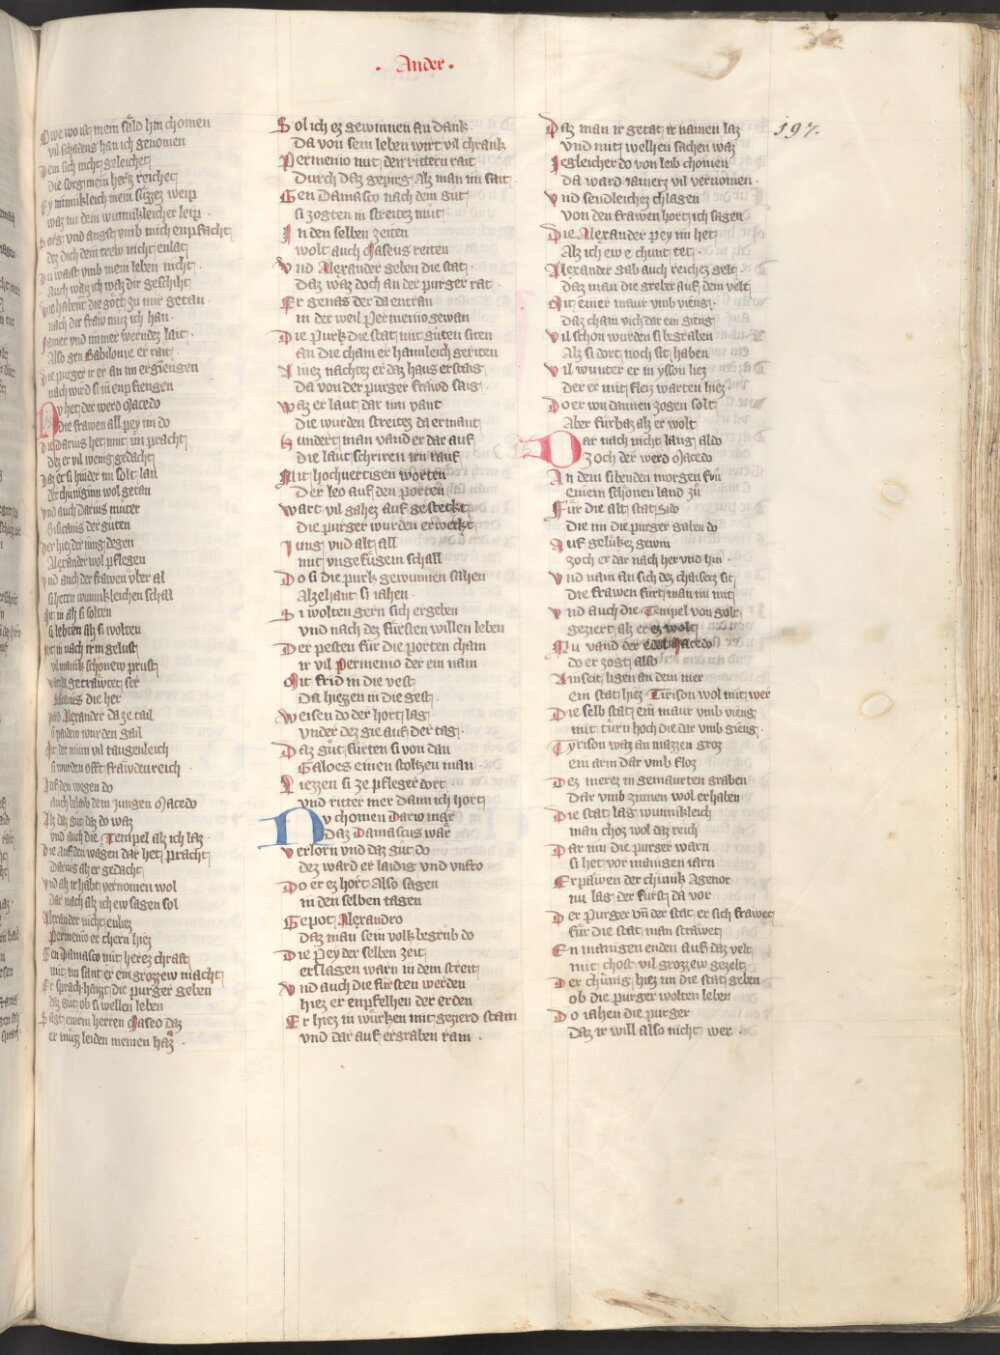 · Ander ·
197.
Owe wo ist mein sáld hin chomen
vil schadens han ich genomen
Dem sich nicht geleichet
die sorg mein hertz reichet
Ey minnikleich mein süzzes weip
waz im dem wunnikleicher leip
Sorg vnd angst vmb mich enpfacht
dez dich dein trew nicht enlat
Du waist vmb mein leben nicht
Auch waz ich waz dir geschiht
wie habent die gött zu mir getan
nach dir fraw muz ich han
Jamer vnd immer werndez lait
Also gen Babilonie er rait
Die purger ir er an im ergiengen
nach wird si in enpfiengen
Ny het der werd Macedo
die frawen all pey im do
Die Darius het mit im pracht
dez er vil wenig gedacht
Daz er si hinder im solt lan
der chuniginn wol getan
vnd auch Darius muter
der guten
Der hiez der iung degen
Alexander wol pflegen
vnd auch der frawen vber al
si heten wunnikleichen schal
Mit in alz si solten
si lebten alz si wolten
nach irm gelust
vil manik schonew prust
getrawtet ser
die her
Alexander da ze tail
si paidew wurden gail
Mit der minn vil taugenleich
si wurden offt frawden reich
Auf den wegen do
auch belaib dem jungen Macedo
Alz daz gut daz do waz
vnd auch die Tempel alz ich laz
Die auf den wagen dar het pracht
Darius alz er gedacht
vnd alz ir habt vernomen wol
Dar nach alz ich ew sagen sol
Alexander nicht enliez
Permenio er chern hiez
Gen Damasco mit herez chraft
mit im sant er ein grozzew macht
Er sprach haizt die purger geben
daz gut ob si wellen leben
Sagt ewrm herren Maseo daz
er muz leiden meinen haz
Sol ich ez gewinnen an dank
Da von sein leben wirt vil chrank
Permenio mit den rittern rait
Durch daz gepirg alz man im sait
Gen Damasco nach dem gut
si zogten in streitez mut
In den selben zeiten
wolt auch Maseus reiten
Vnd Alexander geben die stat
daz waz doch an der purger rat
Er genas der da entran
in der weil Permenio gewan
Die purk die stat mit guten siten
an die cham er haimleich geriten
Ainez nachtez er daz haus erstaig
da von der purger frawd saig
Waz er laut dar inn vant
die wurden streitez da ermant
Hundert man vand er dar auf
die laut schriren irn rauf
Mit hochuertigen worten
Der leo auf den porten
Wart vil gahez auf gestecket
die purger wurden erwecket
Jung vnd alt all
mit vngefugem schall
Do si die purk gewunnen sahen
Alzehant si iahen
Si wolten gern sich ergeben
vnd nach dez fürsten willen leben
Der pesten für die porten cham
ir vil Permenio der ein nam
Mit frid in die vest
Da hiezzen in die gest
Weisen do der hort lag
vnder dez gie auf der tag
Daz gut fürten si von dan
Galoes einen stoltzen man
Liezzen si ze pfleger dort
vnd ritter mer dann ich hort
Ny chomen Dario mär
Daz Damascus wär
Verlorn vnd daz gut do
dez ward er laidig vnd vnfro
Do er ez hort also sagen
in den selben tagen
Gepot Alexandro
daz man sein volk begrub do
Die pey der selben zeit
erslagen warn in dem streit
Vnd auch die fürsten werden
hiez er enpfelhen der erden
Er hiez in würken mit gezierd stain
vnd dar auf ergraben rain
Daz man ir getat ir namen laz
vnd mit welhen sachen waz
Jegleicher do von leib chomen
da ward iamerz vil vernomen
Vnd sendleichez chlagen
von den frawen hort ich sagen
Die Alexander pey im het
Alz ich ew e chunt tet
Alexander gab auch reichez gelt
daz man die greber auf dem velt
Mit einer maur vmb vieng
daz cham vich dar ein gieng
Vil schon wurden si begraben
Alz si dort noch sit haben
Vil wunter er in yson liez
Der er mit fleiz warten hiez
Do er von dannen zogen solt
Aber fürbaz alz er wolt
Dar nach nicht lang aldo
Zoch der werd Macedo
An dem sibenden morgen fru
einem schonen land zü
Für die alt stat Sido
Die im die purger gaben do
Auf gelükez gewin
zoch er dar nach her vnd hin
Vnd nam an sich dez chaiserz sit
die frawen fürt man im mit
Vnd auch die Tempel von golt
geziert alz er ez wolt
Nu vand der edel Macedo
do er zogt also
Ainseit ligen an dem mer
ein stat hiez Tirison wol mit wer
Die selb stat ein maur vmb vieng
mit türn hoch die dar vmb gieng
Tyrison waz an mazzen groz
ein arm dar vmb floz
Dez merez in gemaurten graben
Dar vmb zinnen wol erhaben
Die stat lag wunnikleich
man choz wol daz reich
Dar inn die purger warn
si het vor manigen iarn
Erpawen der chünk Agenor
nu lag der fürst da vor
Der purger vnd der stat er sich frawet
für die stat man strawet
En manigen enden auf daz velt
mit chost vil grozzew gezelt
Der chünig hiez im die stat geben
ob die purger wolten leben
Do iahen die purger
daz ir will also nicht wer